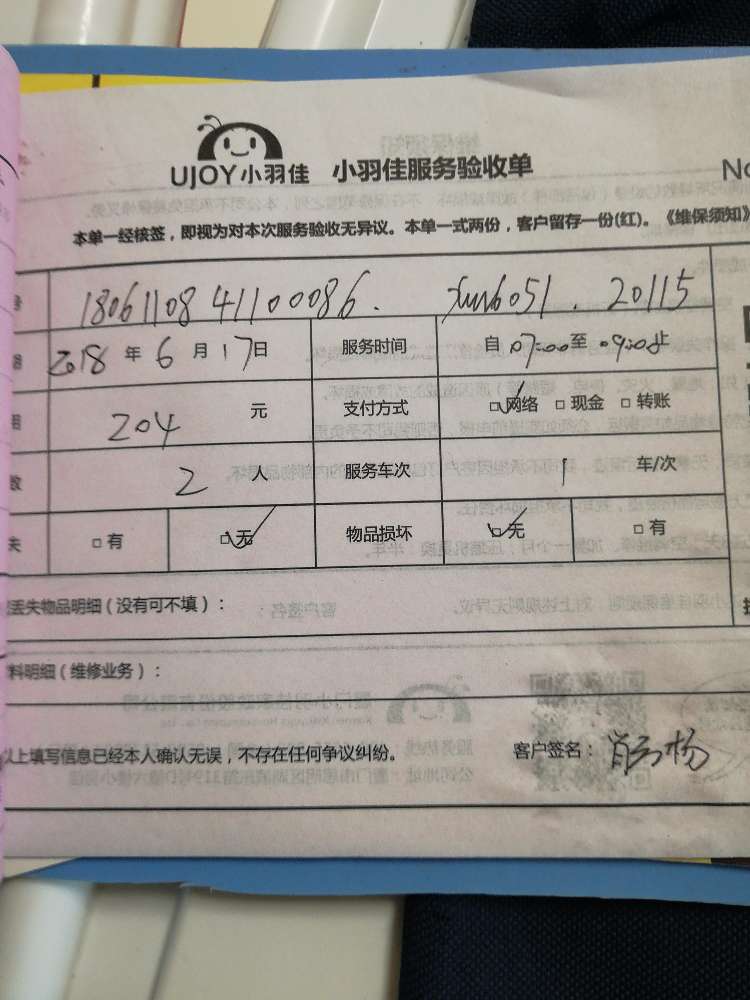 UJOY小羽佳 小羽佳服务验收单 No
本单一经核签，即视为对本次服务验收无异议。本单一式两份，客户留存一份(红)。《维保须知》
1806110841100086. xm6051. 20115
2018 年 6 月 17 日 服务时间 自 07:00 至 09:00 止
204 元 支付方式 □网络 □现金 □转账
2 人 服务车次 1 车/次
□有 □无 物品损坏 □无 □有
丢失物品明细（没有可不填）：
料明细（维修业务）：
以上填写信息已经本人确认无误，不存在任何争议纠纷。 客户签名：